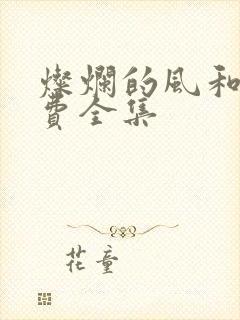 燦爛的風和
費全集
花童